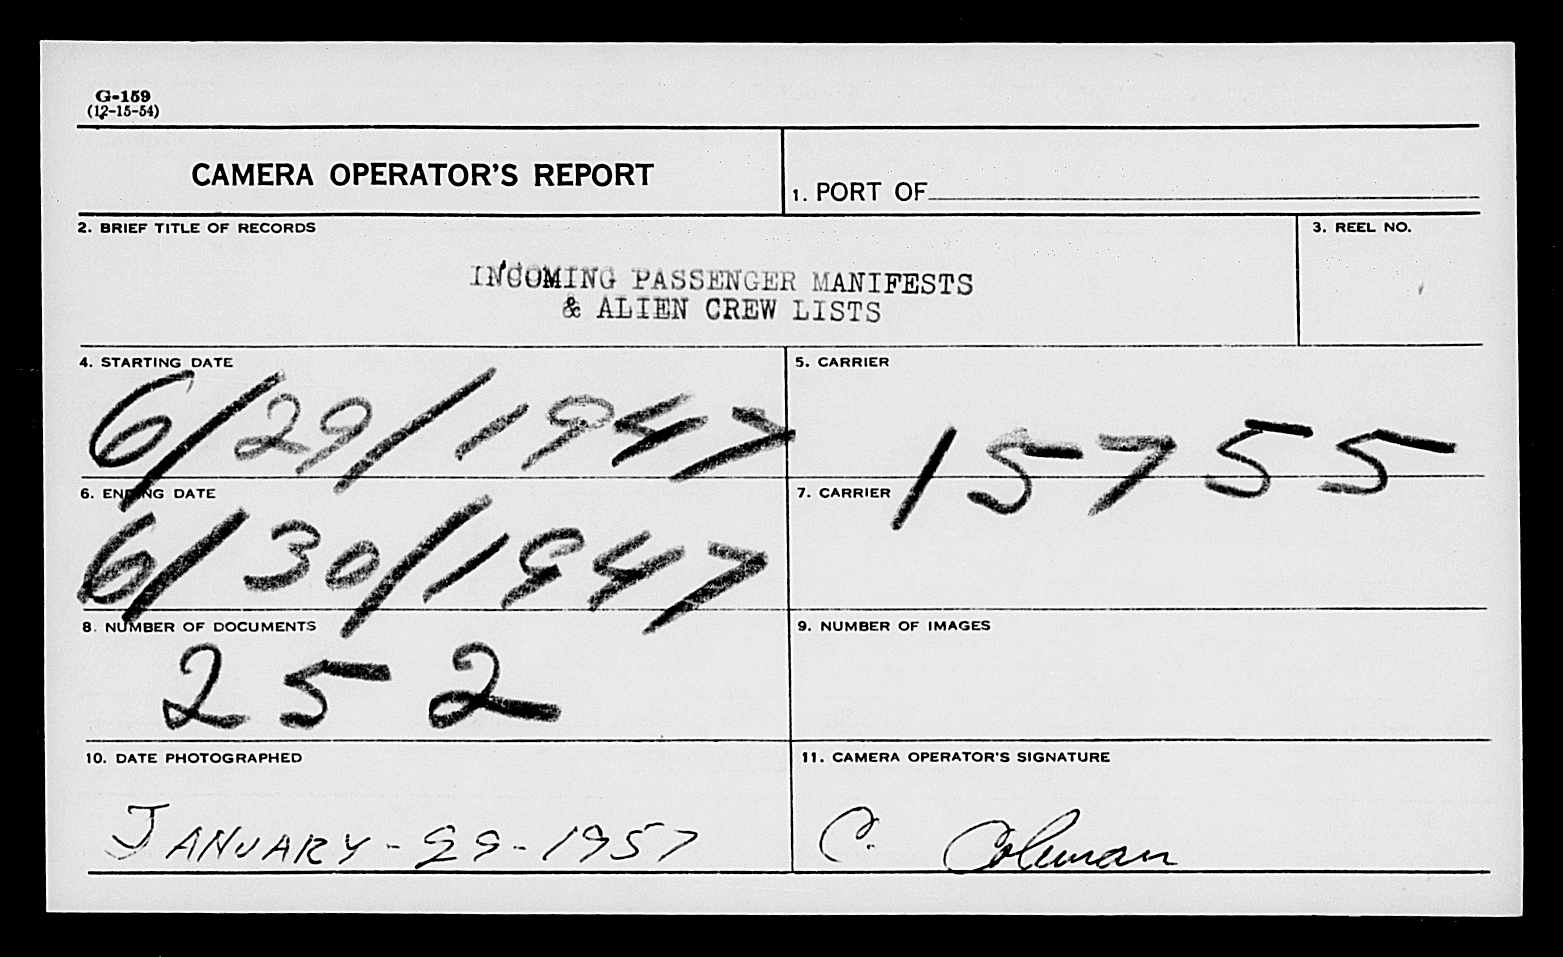 G-159
(12-15-54)
CAMERA OPERATOR'S REPORT
1. PORT OF
2. BRIEF TITLE OF RECORDS
3. REEL NO.
INCOMING PASSENGER MANIFESTS
& ALIEN CREW LISTS
4. STARTING DATE
6/29/1947
5. CARRIER
15755
6. ENDING DATE
6/30/1947
7. CARRIER
8. NUMBER OF DOCUMENTS
252
9. NUMBER OF IMAGES
10. DATE PHOTOGRAPHED
JANUARY-29-1957
11. CAMERA OPERATOR'S SIGNATURE
C. Coleman